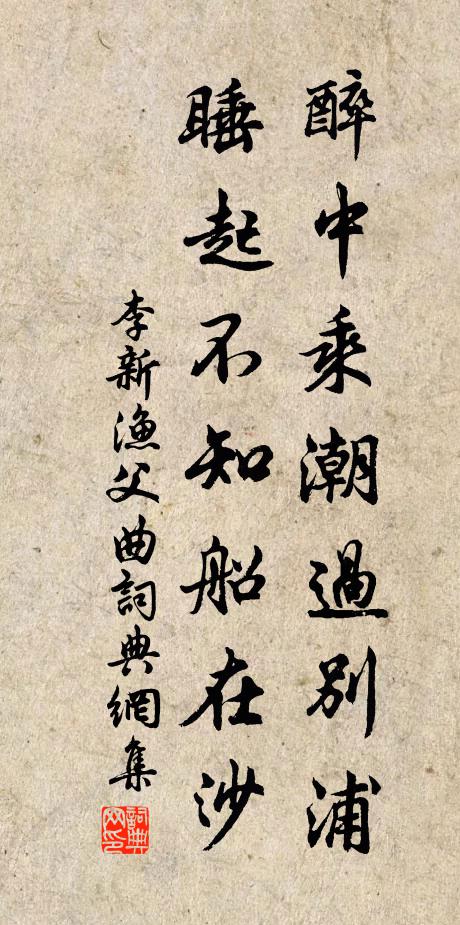 醉中乘潮過別浦
睡起不知船在沙
李新漁父曲詞典網集
詞典網印